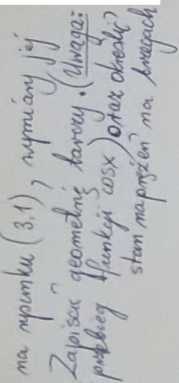 na wycinku (3,1), wymiary jej
Zapisać geometrię tarczy. (Uwaga:
przebieg funkcji cosx) oraz określić
stan naprężeń na brzegach